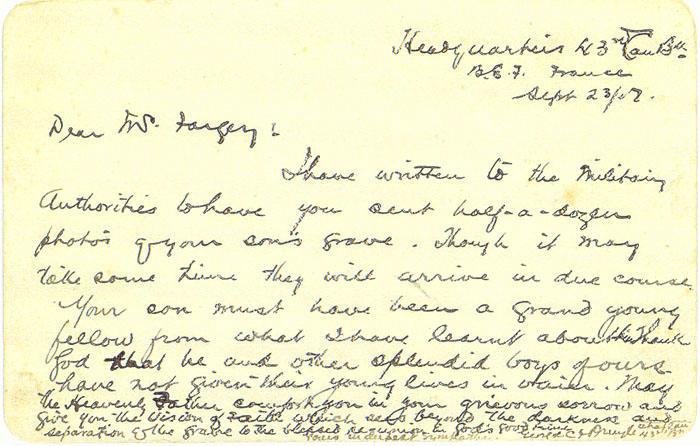 Headquarters 43rd Can Bn
B.E.F. France
Sept 23/17.
Dear Mr. Fargey:
I have written to the Military
Authorities to have you sent half-a-dozen
photos of your son's grave. Though it may
take some time they will arrive in due course.
Your son must have been a grand young
fellow from what I have learnt about him. Thank
God that he and other splendid boys of ours
have not given their young lives in vain. May
the Heavenly Father comfort you in your grievous sorrow and
give you the vision of Faith which sees beyond the darkness and
separation of the grave to the blessed reunion in God's good
Yours in deepest sympathy